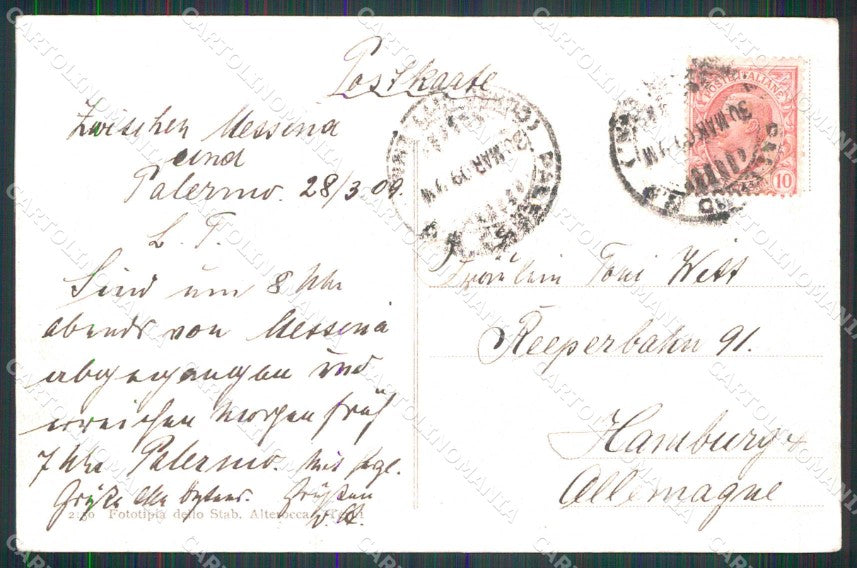 Postkaate
Zwischen Messina
und
Palermo. 28/3.09.
L. T.
Sind um 8 Uhr
abends von Messina
abgegangen und
erreichen morgen früh
7 Uhr Palermo. Mit hgl.
Grüße
Grüßen
2136 Fototipia dello Stab. Alterocca - Terni
POSTE ITALIANE
10
PALERMO
30 MAR 09
PALERMO
30 MAR 09
Fräulein Toni Witt
Reeperbahn 91.
Hamburg
Allemagne
CARTOLINOMANIA